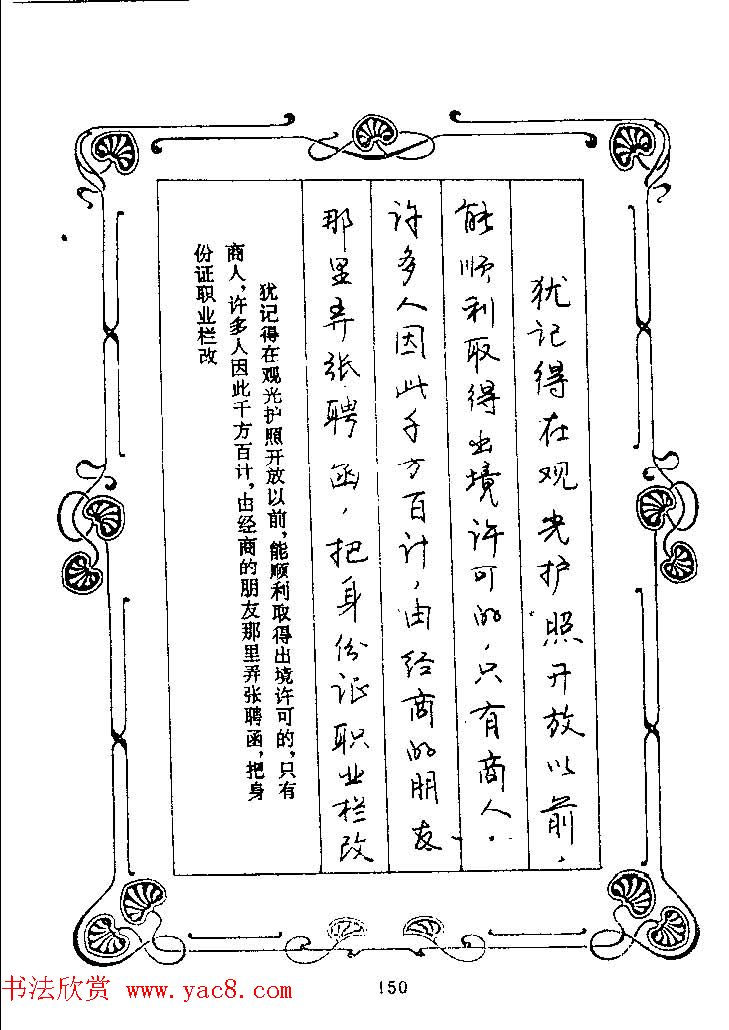 犹记得在观光护照开放以前，
能顺利取得出境许可的，只有商人。
许多人因此千方百计，由经商的朋友
那里弄张聘函，把身份证职业栏改
犹记得在观光护照开放以前，能顺利取得出境许可的，只有
商人，许多人因此千方百计，由经商的朋友那里弄张聘函，把身
份证职业栏改
书法欣赏 www.yac8.com
150